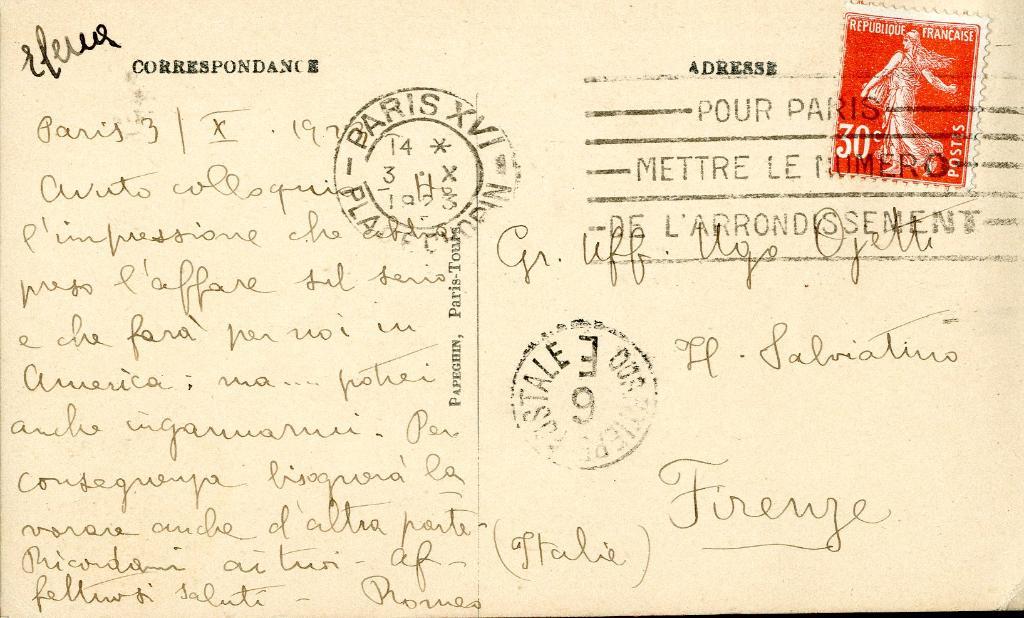 CORRESPONDANCE
ADRESSE
Paris 3 / X . 192
Avuto colloqui
l'impressione che abbia
preso l'affare sul serio
e che farà per noi in
America: ma.... potrei
anche ingannarmi. Per
conseguenza bisognerà la
vorare anche d'altra parte-
Ricordami ai tuoi - Af-
fettuosi saluti - Romeo
PAPEGHIN, Paris-Tours
PARIS XVI
14 *
3 X
1923
PLACE CHOPIN
REPUBLIQUE FRANÇAISE
30c
POSTES
POUR PARIS
METTRE LE NUMERO
DE L'ARRONDISSEMENT
Gr. Uff. Ugo Ojetti
Il Salviatino
Firenze
(Italie)
POSTALE
E
6